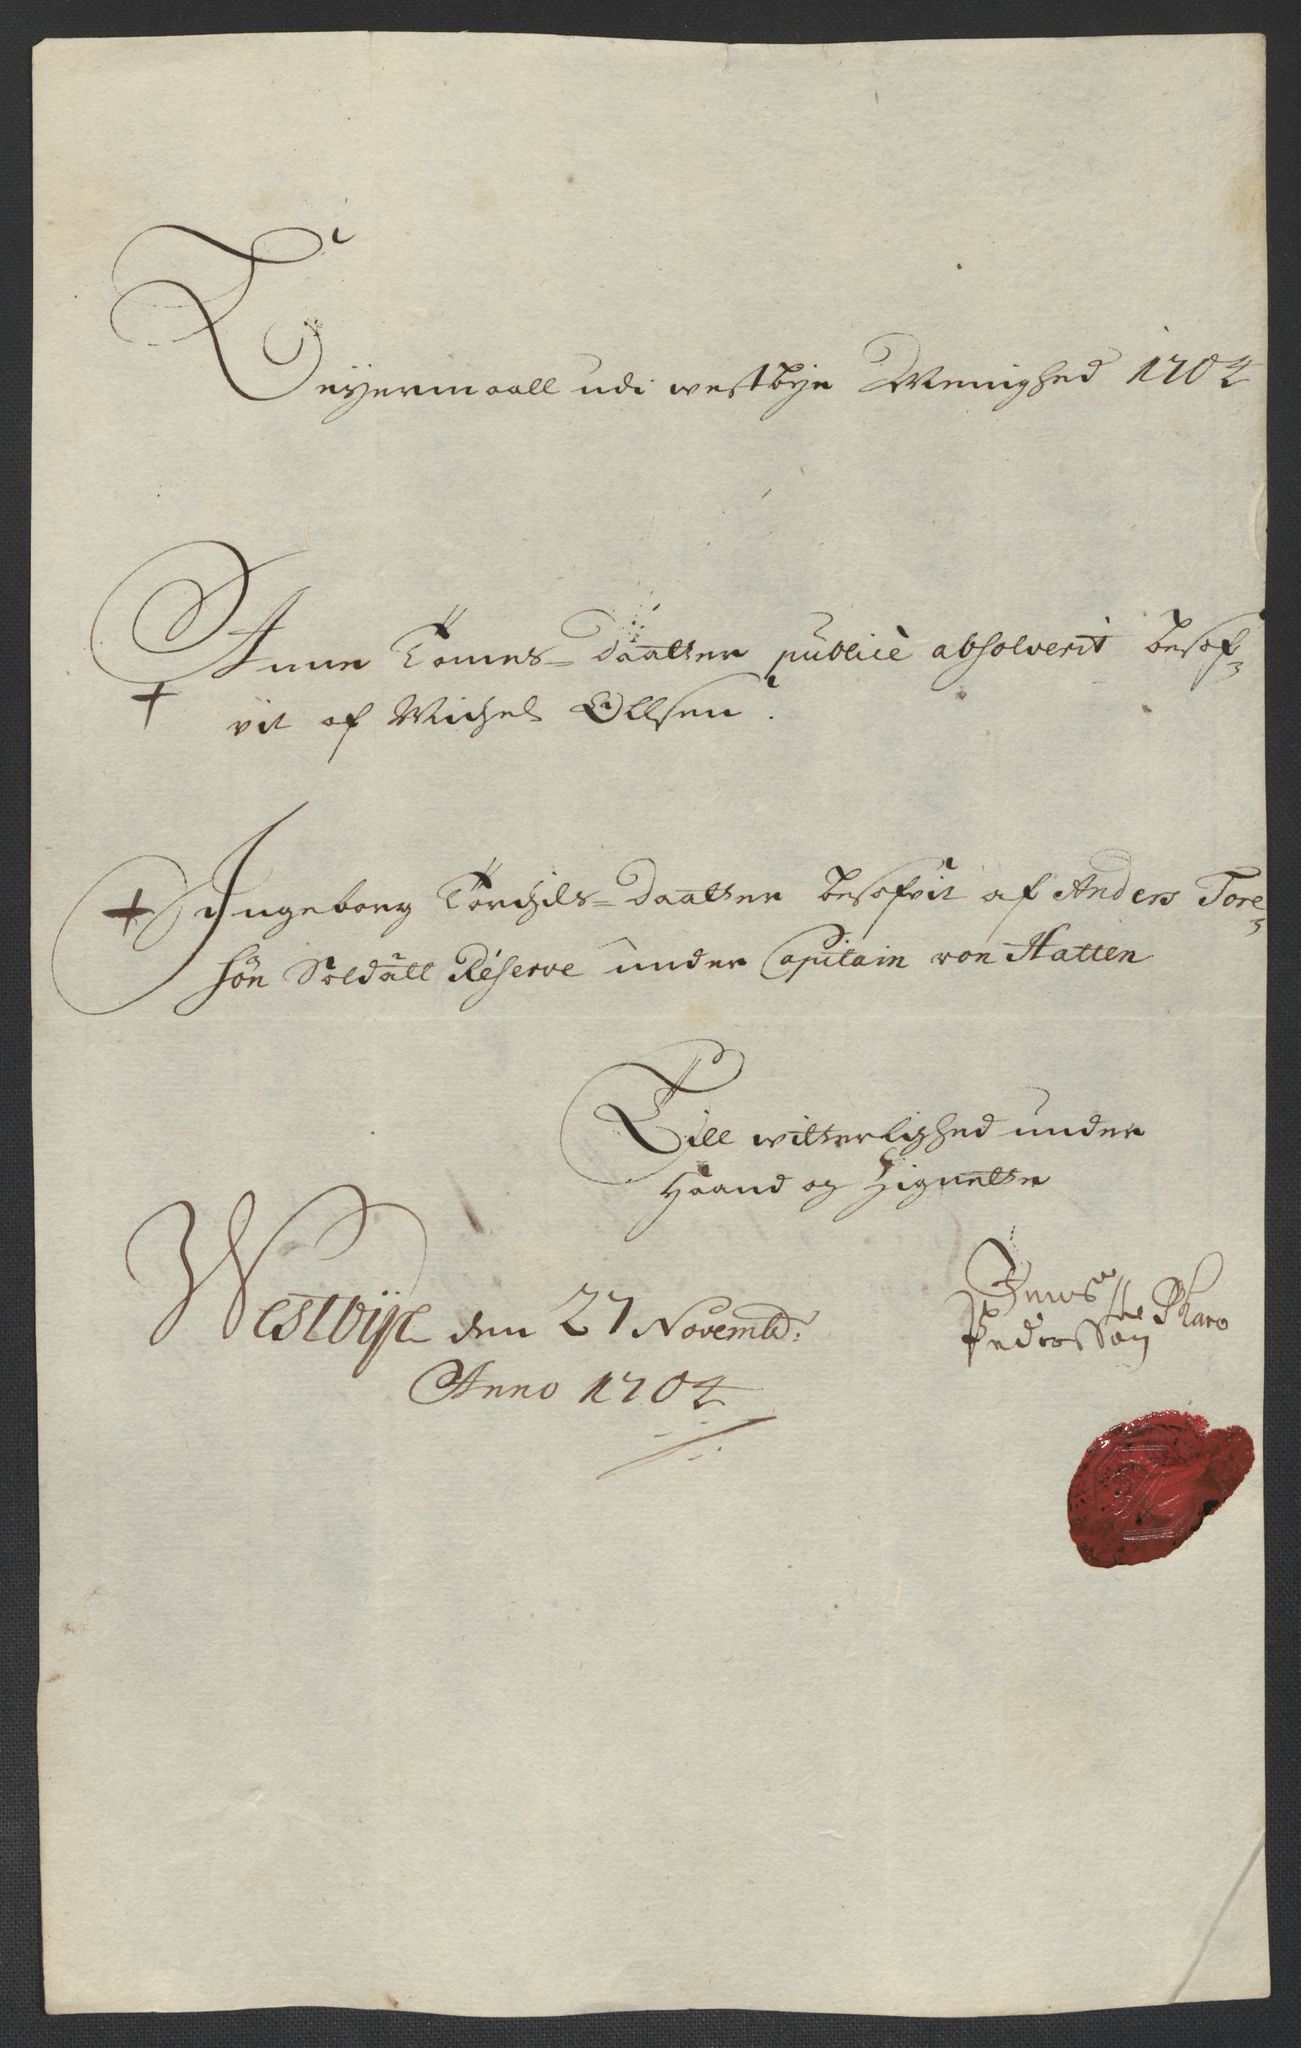 Leyermaall udi westbye Menighed 1704
Anne Tomes-daatter publicè absolverit besof-
vit af Michel Ollsen.
Ingeborg Torchils-daatter besofvit af Anders Tore-
søn Soldatt Reserve under Capitain von Hatten
Till witterlighed under
Haand og Zignette
Westbije den 27 Novemb:
Anno 1704
Jens
Pedersøn Pharo